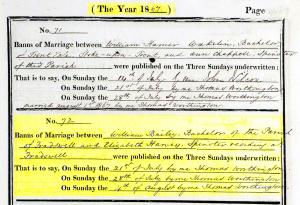 (The Year 1867.) Page
No. 71
Banns of Marriage between William Hamer Wakelin, Bachelor
of Trent Vale, Stoke upon Trent, and Ann Chappell, Spinster
of this Parish
were published on the Three Sundays underwritten:
That is to say, On Sunday the 14th of July by me John Wilson
On Sunday the 21st of July by me Thomas Worthington
On Sunday the 28th of July by me Thomas Worthington
married August 1867 by me Thomas Worthington
No. 72
Banns of Marriage between William Bailey, Bachelor of the Parish
of Tradswell and Elizabeth Harvey, Spinster residing at
Tradswell were published on the Three Sundays underwritten:
That is to say, On Sunday the 21st of July by me Thomas Worthington
On Sunday the 28th of July by me Thomas Worthington
On Sunday the 4th of August by me Thomas Worthington